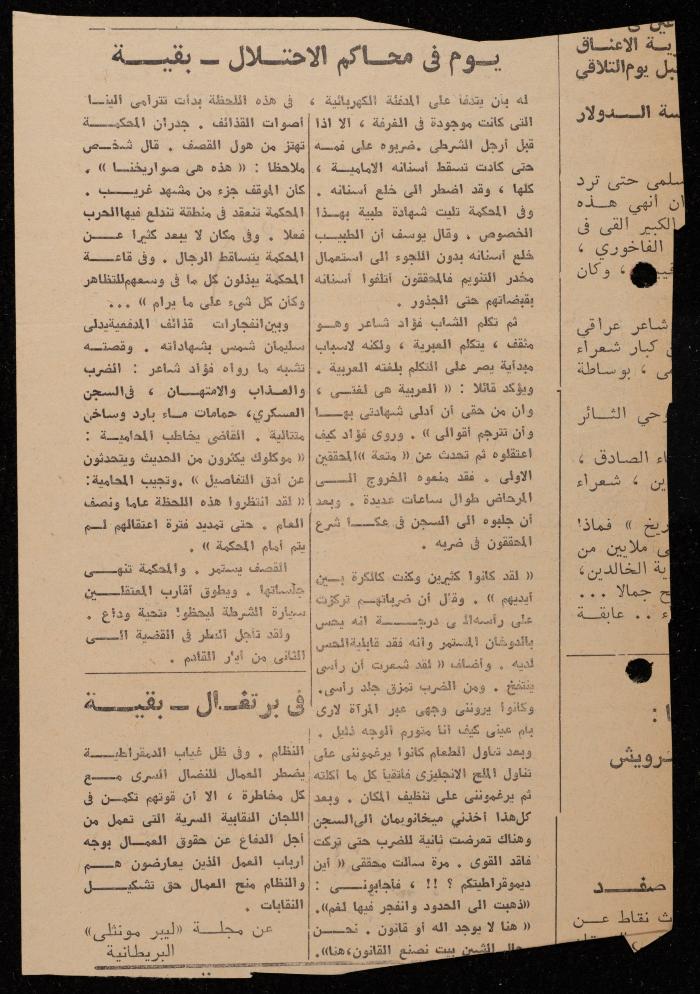 يوم فى محاكم الاحتلال ــ بقية
له بأن يتدفأ على المدفئة الكهربائية ،
التى كانت موجودة فى الغرفة ، الا اذا
قبل أرجل الشرطى . ضربوه على فمه
حتى كادت تسقط أسنانه الامامية ،
كلها ، وقد اضطر الى خلع أسنانه .
وفى المحكمة تليت شهادة طبية بهذا
الخصوص . وقال يوسف أن الطبيب
خلع أسنانه بدون اللجوء الى استعمال
مخدر التنويم فالمحققون أتلفوا أسنانه
بقبضاتهم حتى الجذور .
ثم تكلم الشاب فؤاد شاعر وهو
مثقف ، يتكلم العبرية ، ولكنه لاسباب
مبدأية يصر على التكلم بلغته العربية .
ويؤكد قائلا : « العربية هى لغتى ،
وان من حقى أن أدلى شهادتى بها
وأن تترجم أقوالى » . وروى فؤاد كيف
اعتقلوه ثم تحدث عن « متعة »المحققين
الاولى . فقد منعوه الخروج الى
المرحاض طوال ساعات عديدة . وبعد
أن جلبوه الى السجن فى عكا شرع
المحققون فى ضربه .
« لقد كانوا كثيرين وكنت كالكرة بين
أيديهم » . وقال أن ضرباتهم تركزت
على رأسه الى درجة انه يحس
بالدوشان المستمر وأنه فقد قابليةالحس
لديه . وأضاف « لقد شعرت أن رأسى
ينتفخ . ومن الضرب تمزق جلد رأسى.
وكانوا يروننى وجهى عبر المرآة لارى
بأم عينى كيف أنا متورم الوجه ذليل .
وبعد تناول الطعام كانوا يرغموننى على
تناول الملح الانجليزى فأتقيأ كل ما أكلته
ثم يرغموننى على تنظيف المكان . وبعد
كل هذا أخذنى ميخانويمان الى السجن
وهناك تعرضت ثانية للضرب حتى تركت
فاقد القوى . مرة سألت محققى « أين
ديموقراطيتكم ؟ !! ، فأجابونى :
«ذهبت الى الحدود وانفجر فيها لغم».
« هنا لا يوجد اله أو قانون . نحن
الشين بيت نصنع القانون،هنا».
فى هذه اللحظة بدأت تترامى الينا
أصوات القذائف . جدران المحكمة
تهتز من هول القصف . قال شخص
ملاحظا : « هذه هى صواريخنا » .
كان الموقف جزء من مشهد غريب .
المحكمة تنعقد فى منطقة تندلع فيهاالحرب
فعلا . وفى مكان لا يبعد كثيرا عن
المحكمة يتساقط الرجال . وفى قاعة
المحكمة يبذلون كل ما فى وسعهم للتظاهر
وكأن كل شىء على ما يرام » ...
وبين انفجارات قذائف المدفعيةيدلى
سليمان شمس بشهاداته . وقصته
تشبه ما رواه فؤاد شاعر : الضرب
والعذاب والامتهان ، فى السجن
العسكرى، حمامات ماء بارد وساخن
متتالية . القاضى يخاطب المحامية :
« موكلوك يكثرون من الحديث ويتحدثون
عن أدق التفاصيل » .وتجيب المحامية:
« لقد انتظروا هذه اللحظة عاما ونصف
العام . حتى تمديد فترة اعتقالهم لم
يتم أمام المحكمة » .
القصف يستمر . والمحكمة تنهى
جلساتها . ويطوق أقارب المعتقلين
سيارة الشرطة ليحظوا بتحية وداع .
ولقد تأجل النظر فى القضية الى
الثانى من أيار القادم .
فى برتغال ــ بقية
النظام . وفى ظل غياب الدمقراطية
يضطر العمال للنضال السرى مع
كل مخاطرة ، الا أن قوتهم تكمن فى
اللجان النقابية السرية التى تعمل من
أجل الدفاع عن حقوق العمال بوجه
أرباب العمل الذين يعارضون هم
والنظام منح العمال حق تشكيل
النقابات .
عن مجلة «ليبر مونثلى»
البريطانية
رية الاعناق
بل يوم التلاقي
سة الدولار
سلمى حتى ترد
ان انهي هذه
الكبير القى فى
الفاخوري ،
، وكان
شاعر عراقي
كبار شعراء
ى ، بوساطة
وحي الثائر
اء الصادق ،
ين ، شعراء
ريخ » فماذا!
ى ملايين من
ية الخالدين،
ح جمالا ...
ء .. عابقة
ا :
درويش
صفد
ث نقاط عن